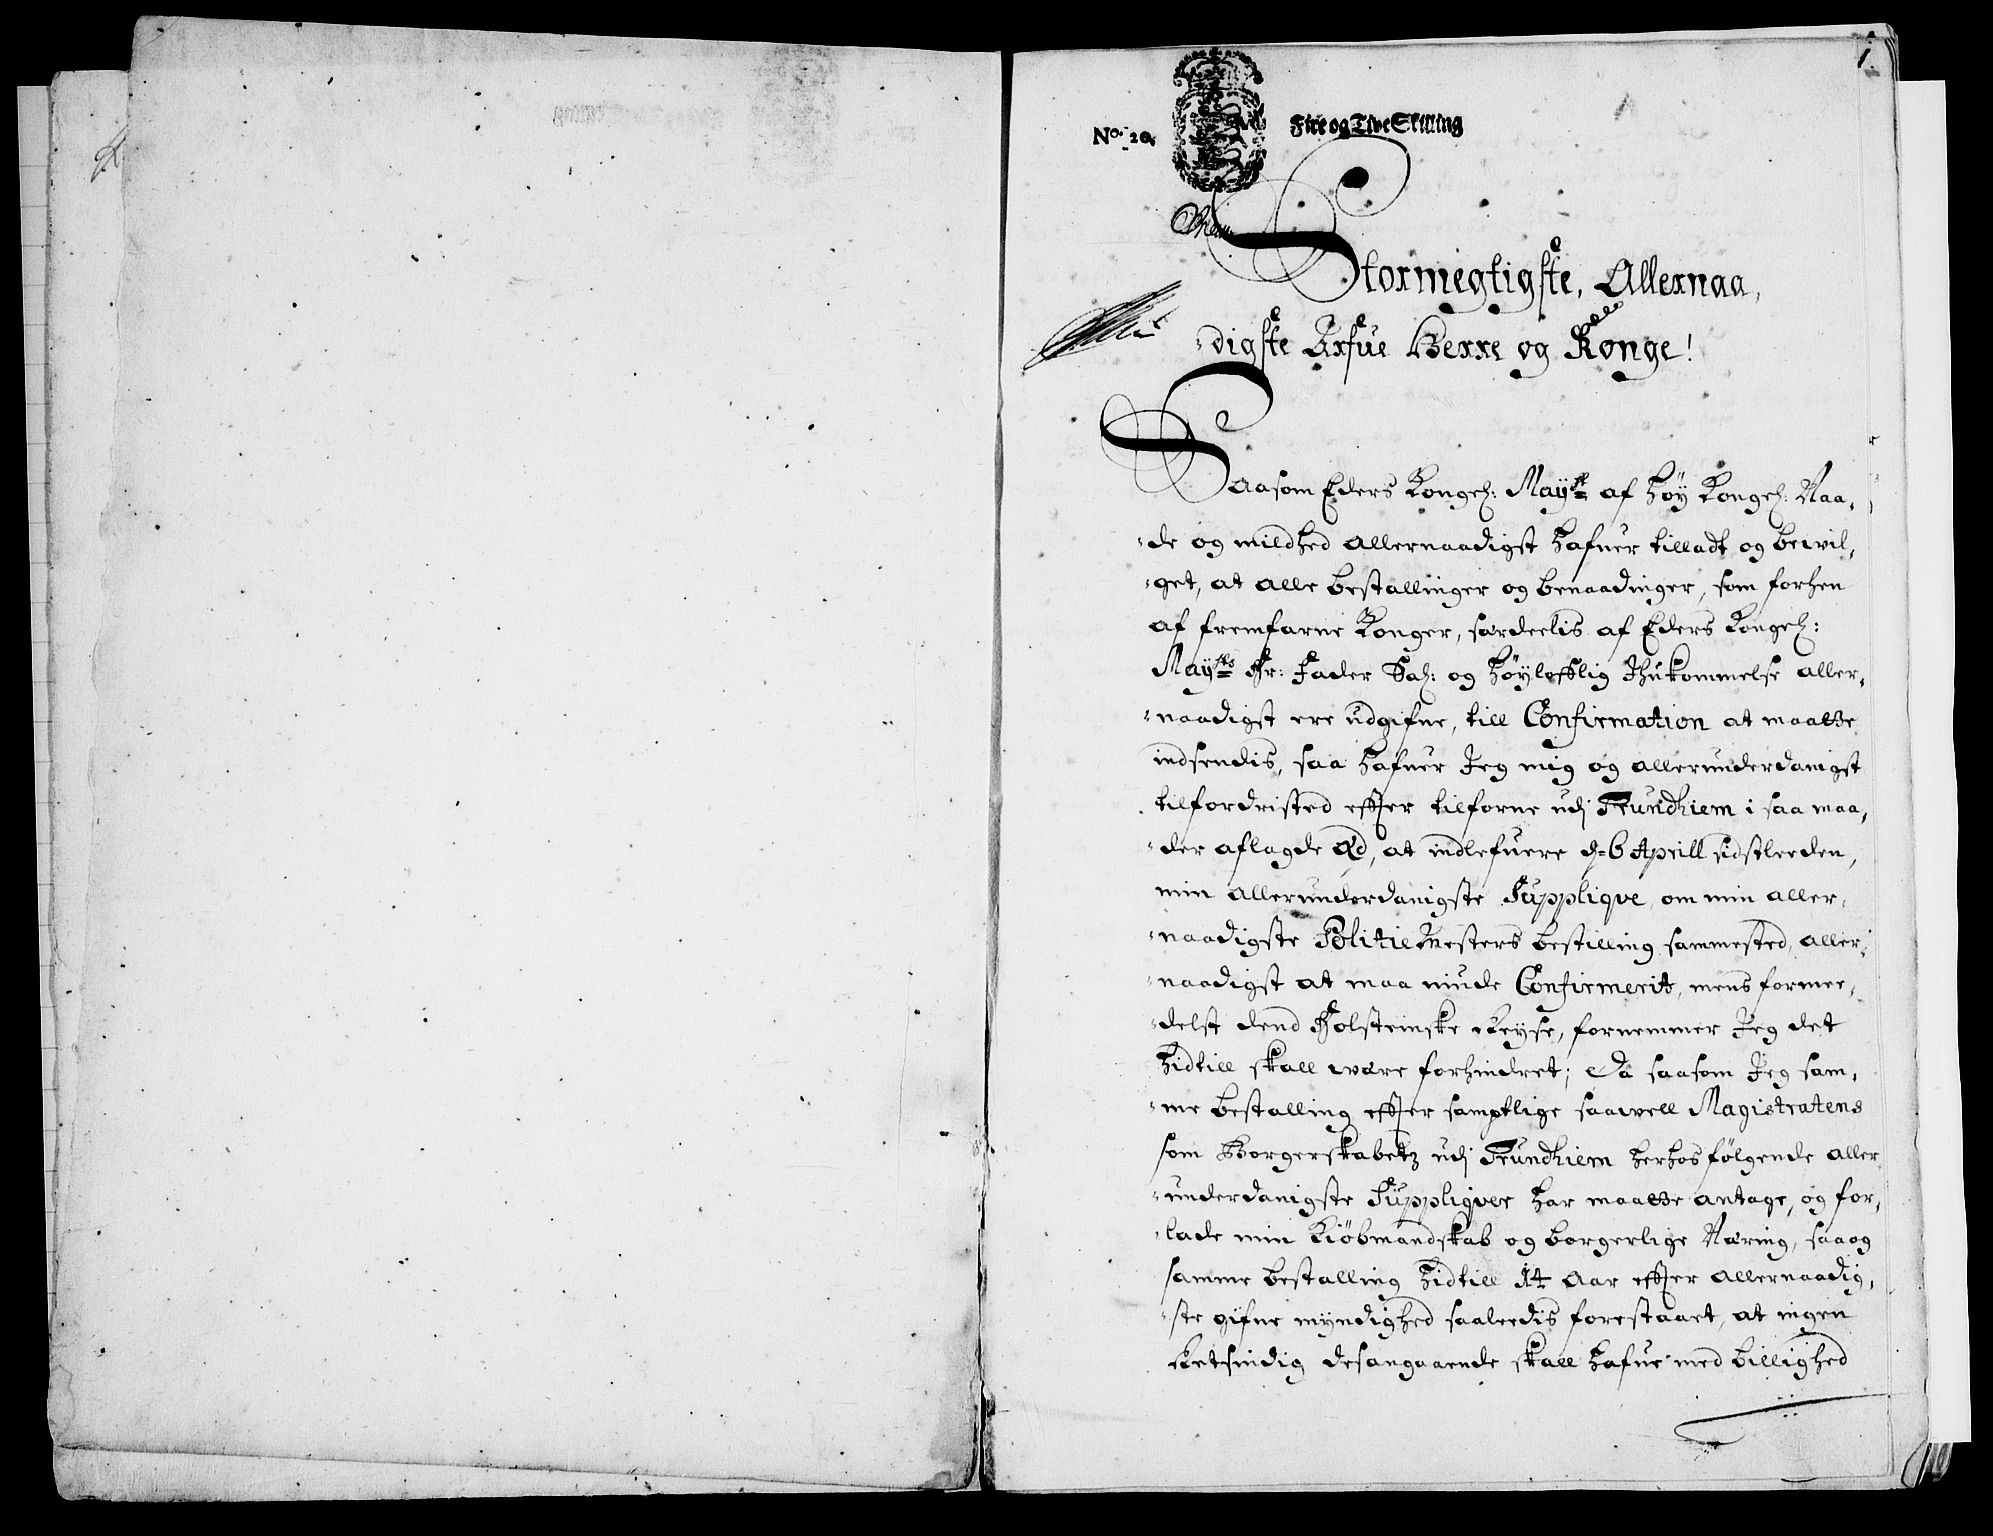 1.
No. 20.
Fire og Tive Skilling
Stormegtigste, Allernaa,
digste Arfue Herre og Konge!
Saasom Eders Kongel: Mayst af höy Kongel: Naa,
de og mildhed allernaadigst hafuer tilladt og bewil,
get, at alle bestallinger og benaadinger, som forhen
af fremfarne Konger, særdeelis af Eders Kongel:
Maysts Hr: Fader Sal: og höyloflig Ihukommelse aller,
naadigst ere udgifne, till Confirmation at maatte
indsendis, saa hafuer Jeg mig og allerunderdanigst
tilfordristed effter tilforne udj Trundhiem i saa maa,
der aflagde Æd, at indlefuere d. 6 Aprill sidstleeden,
min allerunderdanigste Supplique, om min aller,
naadigste Politiemesters bestilling sammested, aller,
naadigst at maa niude Confirmerit, mens formee,
delst dend Holsteinske Reyse, fornemmer Jeg det
hidtill skall wære forhindret; Da saasom Jeg sam,
me bestalling effter samptlige saawell Magistratens
som Borgerskabetz udj Trundhiem herhos fölgende aller
underdanigste Suppliqver har maatte antage, og for,
lade min Kiöbmandskab og borgerlige Næring, saa og
samme bestalling hidtill 14 Aar effter allernaadig,
ste gifne myndighed saaleedis forestaaet, at ingen
Retsindig desangaaende skall hafue med billighed